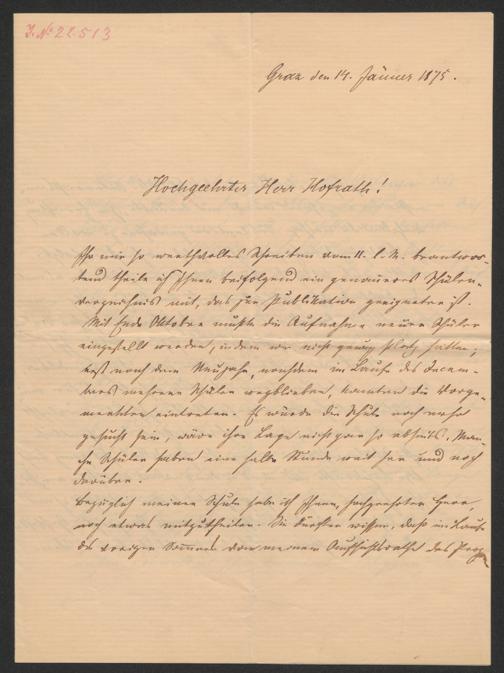 I. № 22.513
Graz den 14. Jänner 1875.
Hochgeehrter Herr Hofrath!
Ihr mir so werthvolles Schreiben vom 11. l. M. beantwor-
tend theile ich Ihnen beifolgend ein genaueres Schüler-
verzeichnis mit, das zur Publikation geeigneter ist.
Mit Ende Oktober mußte die Aufnahme neuer Schüler
eingestellt werden, indem wir nicht genug Platz hatten;
erst nach dem Neujahr, nachdem im Laufe des Decem-
bers mehrere Schüler wegblieben, konnten die Vorge-
merkten eintreten. Es würde die Schule noch mehr
gesucht sein, wäre ihre Lage nicht gar so abseits. Man-
che Schüler haben eine halbe Stunde weit her und noch
darüber.
Bezüglich meiner Schule habe ich Ihnen, hochgeehrter Herr,
noch etwas mitzutheilen. Sie dürften wissen, daß im Laufe
des vorigen Sommers von meinem Aufsichtsrathe das